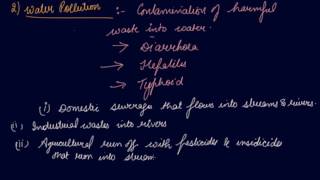 2) Water Pollution :- Contamination of harmful
waste into water.
→ Diarrhoea
→ Hepatites
→ Typhoid
(i) Domestic sewrages that flows into streams & rivers.
(i) Industrial wastes into rivers
(ii) Agricultural run off with pesticides & insidicides
that run into stream.